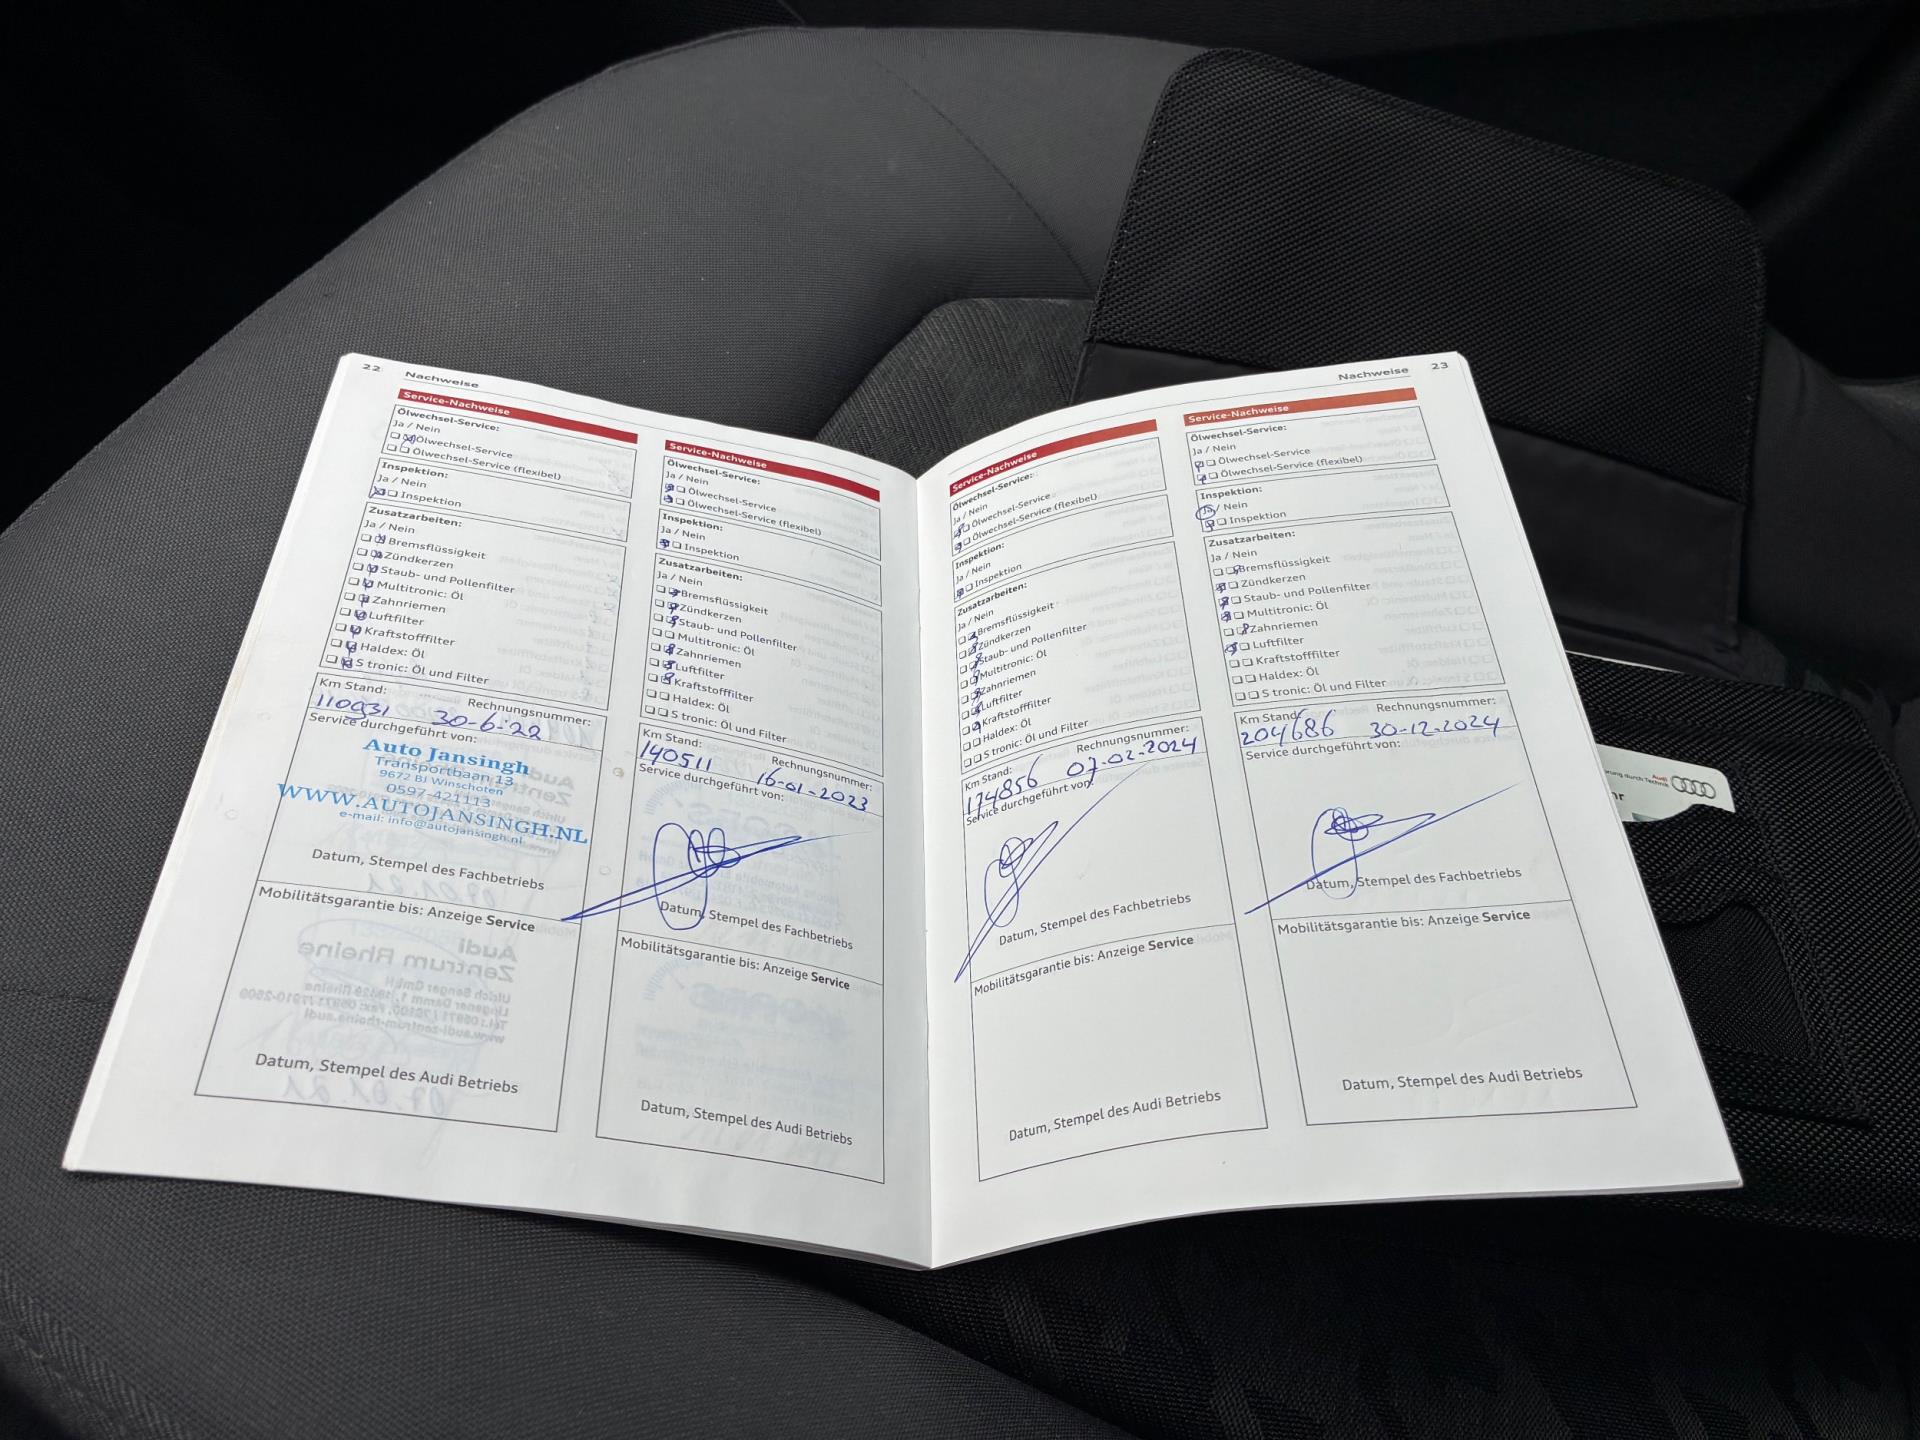 22 Nachweise
Service-Nachweise
Ölwechsel-Service:
Ja / Nein
Ölwechsel-Service
Ölwechsel-Service (flexibel)
Inspektion:
Ja / Nein
Inspektion
Zusatzarbeiten:
Ja / Nein
Bremsflüssigkeit
Zündkerzen
Staub- und Pollenfilter
Multitronic: Öl
Zahnriemen
Luftfilter
Kraftstofffilter
Haldex: Öl
S tronic: Öl und Filter
Km Stand: Rechnungsnummer:
110931 30-6-22
Service durchgeführt von:
Auto Jansingh
Transportbaan 13
9672 BJ Winschoten
0597-421113
WWW.AUTOJANSINGH.NL
e-mail: info@autojansingh.nl
Datum, Stempel des Fachbetriebs
Mobilitätsgarantie bis: Anzeige Service
Datum, Stempel des Audi Betriebs
Service-Nachweise
Ölwechsel-Service:
Ja / Nein
Ölwechsel-Service
Ölwechsel-Service (flexibel)
Inspektion:
Ja / Nein
Inspektion
Zusatzarbeiten:
Ja / Nein
Bremsflüssigkeit
Zündkerzen
Staub- und Pollenfilter
Multitronic: Öl
Zahnriemen
Luftfilter
Kraftstofffilter
Haldex: Öl
S tronic: Öl und Filter
Km Stand: Rechnungsnummer:
140511 16-01-2023
Service durchgeführt von:
Datum, Stempel des Fachbetriebs
Mobilitätsgarantie bis: Anzeige Service
Datum, Stempel des Audi Betriebs
Nachweise 23
Service-Nachweise
Ölwechsel-Service:
Ja / Nein
Ölwechsel-Service
Ölwechsel-Service (flexibel)
Inspektion:
Ja / Nein
Inspektion
Zusatzarbeiten:
Ja / Nein
Bremsflüssigkeit
Zündkerzen
Staub- und Pollenfilter
Multitronic: Öl
Zahnriemen
Luftfilter
Kraftstofffilter
Haldex: Öl
S tronic: Öl und Filter
Km Stand: Rechnungsnummer:
174856 07-02-2024
Service durchgeführt von:
Datum, Stempel des Fachbetriebs
Mobilitätsgarantie bis: Anzeige Service
Datum, Stempel des Audi Betriebs
Service-Nachweise
Ölwechsel-Service:
Ja / Nein
Ölwechsel-Service
Ölwechsel-Service (flexibel)
Inspektion:
Ja / Nein
Inspektion
Zusatzarbeiten:
Ja / Nein
Bremsflüssigkeit
Zündkerzen
Staub- und Pollenfilter
Multitronic: Öl
Zahnriemen
Luftfilter
Kraftstofffilter
Haldex: Öl
S tronic: Öl und Filter
Km Stand: Rechnungsnummer:
204686 30-12-2024
Service durchgeführt von:
Datum, Stempel des Fachbetriebs
Mobilitätsgarantie bis: Anzeige Service
Datum, Stempel des Audi Betriebs
Audi
durch Technik